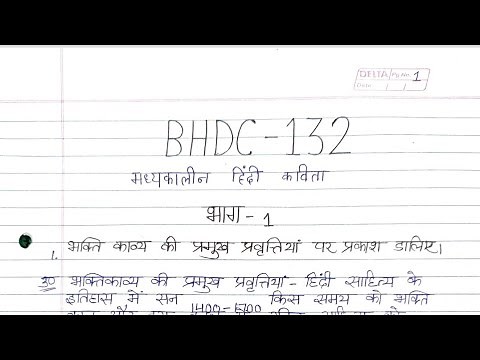 DELTA Pg No. 1
Date / /
BHDC-132
मध्यकालीन हिंदी कविता
भाग - 1
1. भक्ति काव्य की प्रमुख प्रवृत्तियां पर प्रकाश डालिए।
उ० भक्तिकाव्य की प्रमुख प्रवृत्तियां - हिंदी साहित्य के
इतिहास में सन 1400-1700 किस समय को भक्ति